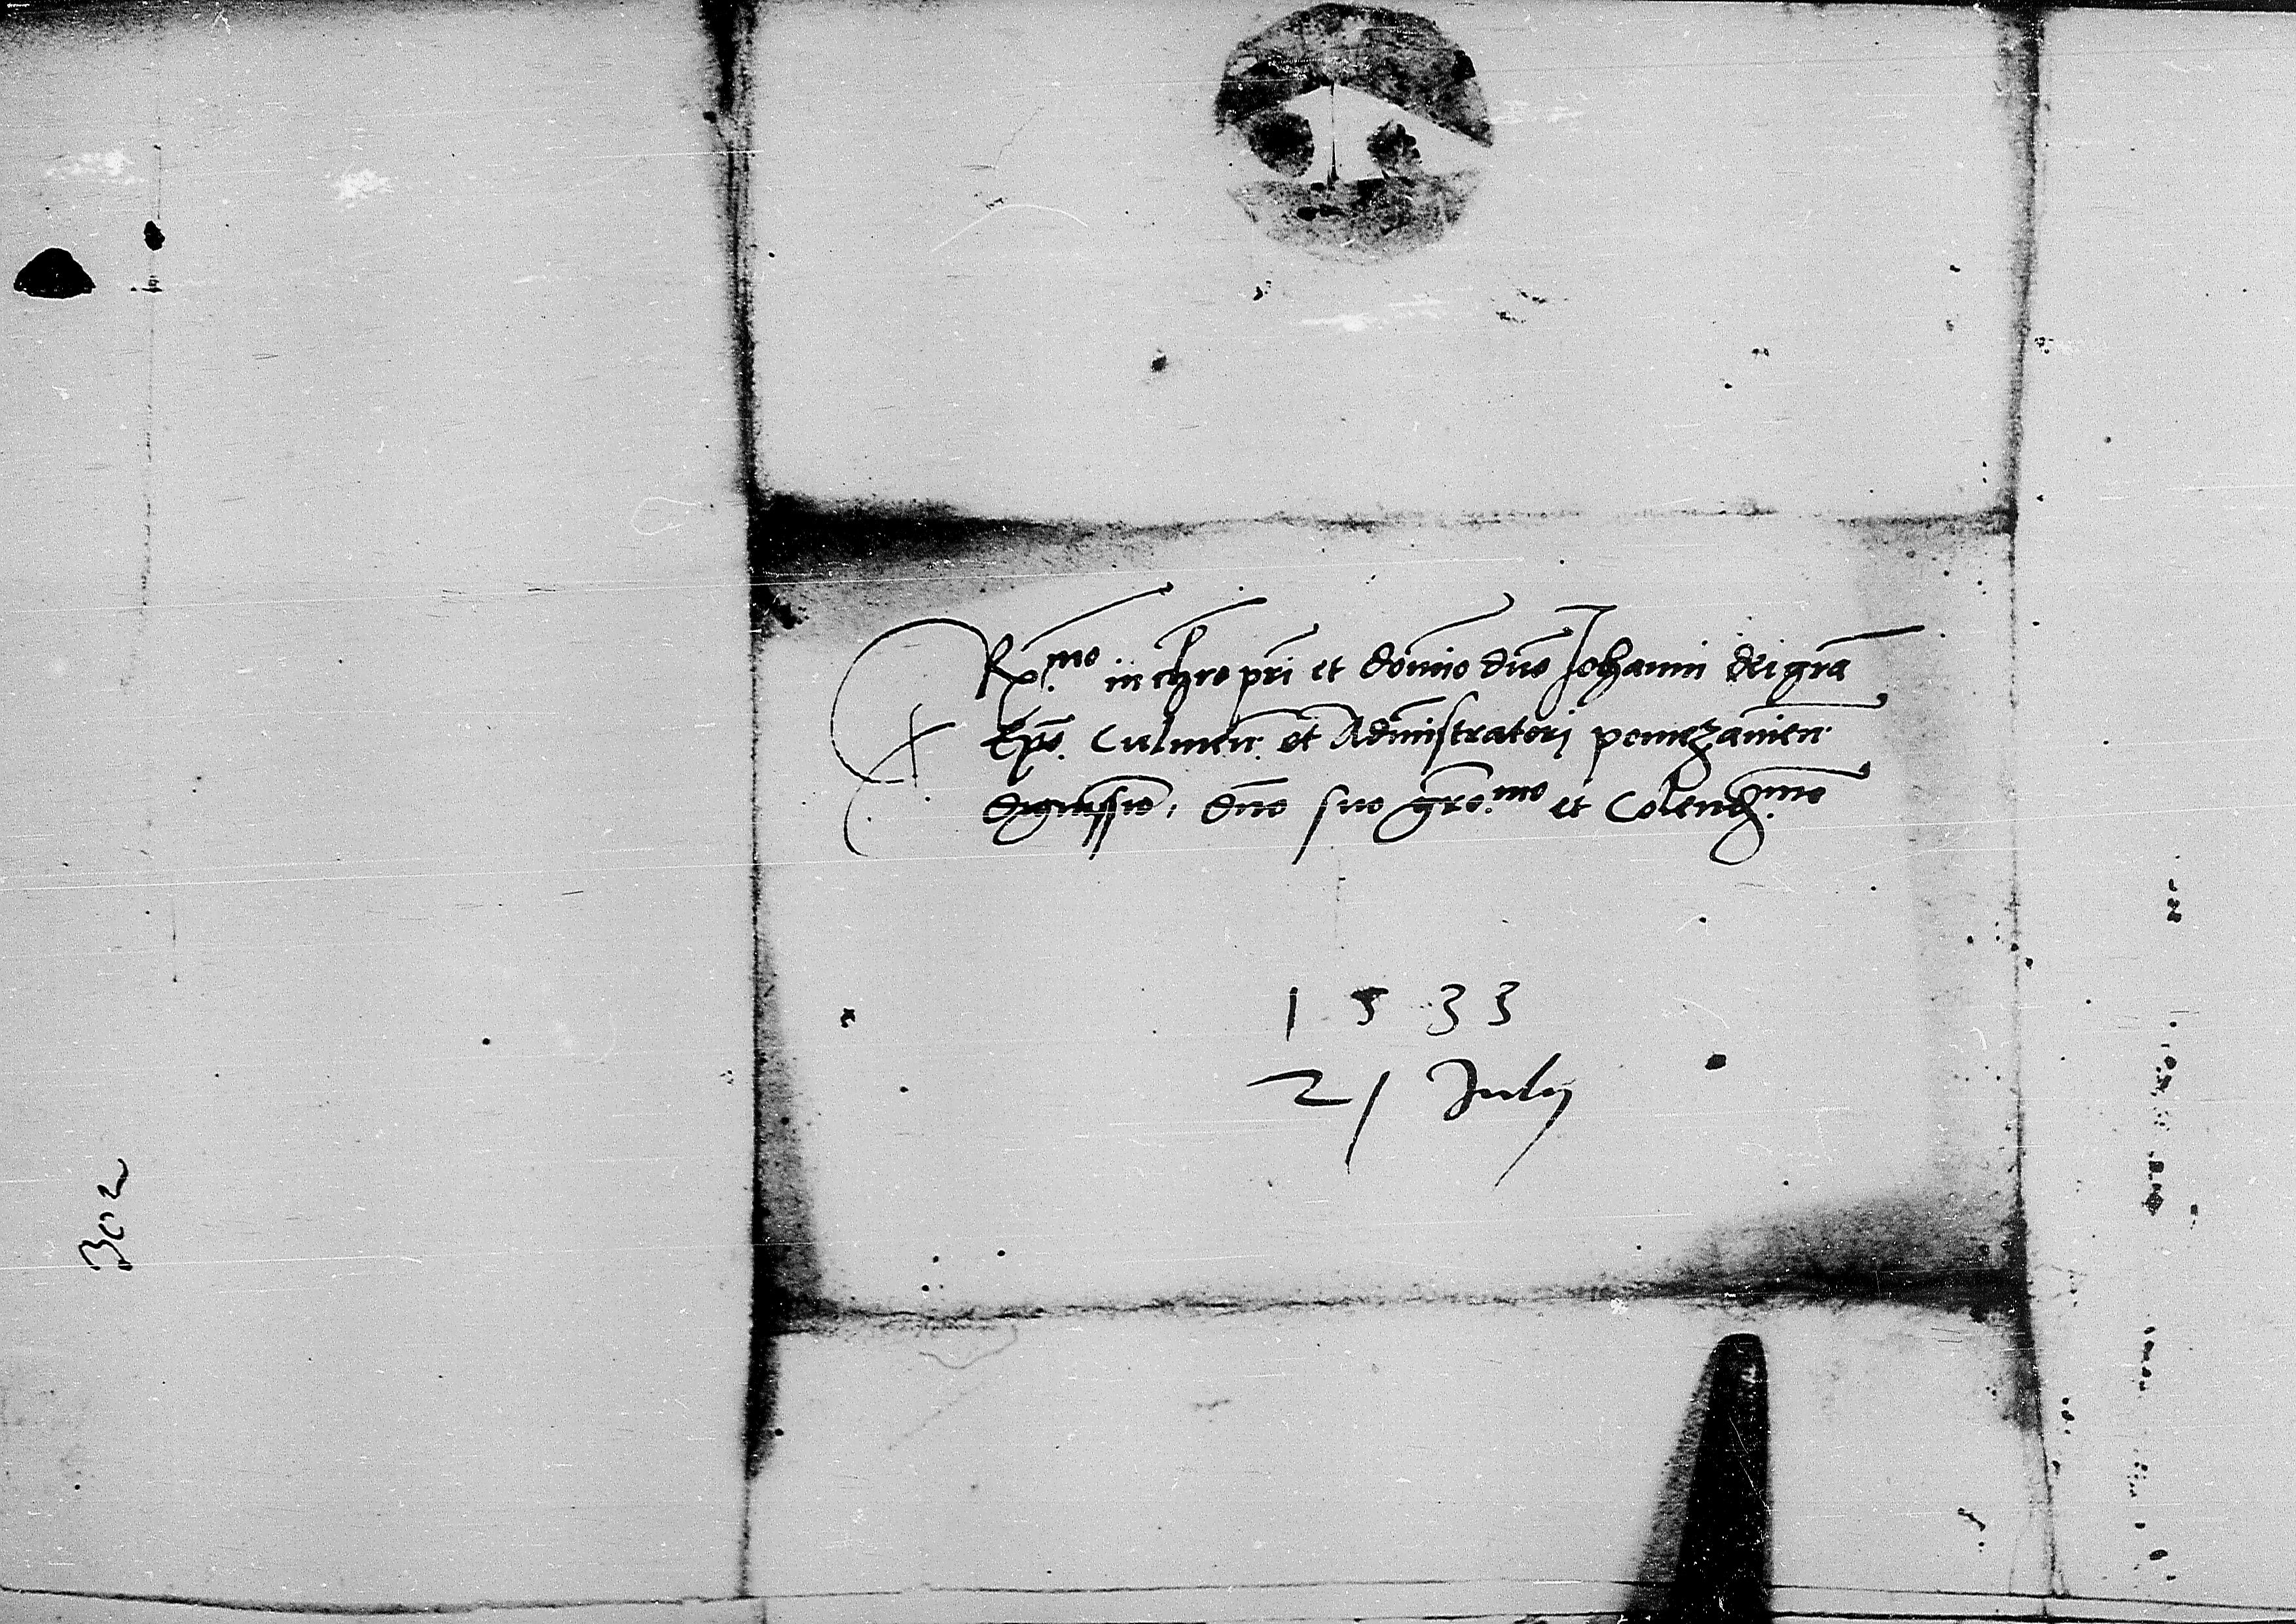 Rx.mo in chro pri et domino dno Johanni dei gra
Epo. Culmen. et Administratori pomezanien
dignissio, dno suo gro.mo et Colend.mo
1533
21 July
302